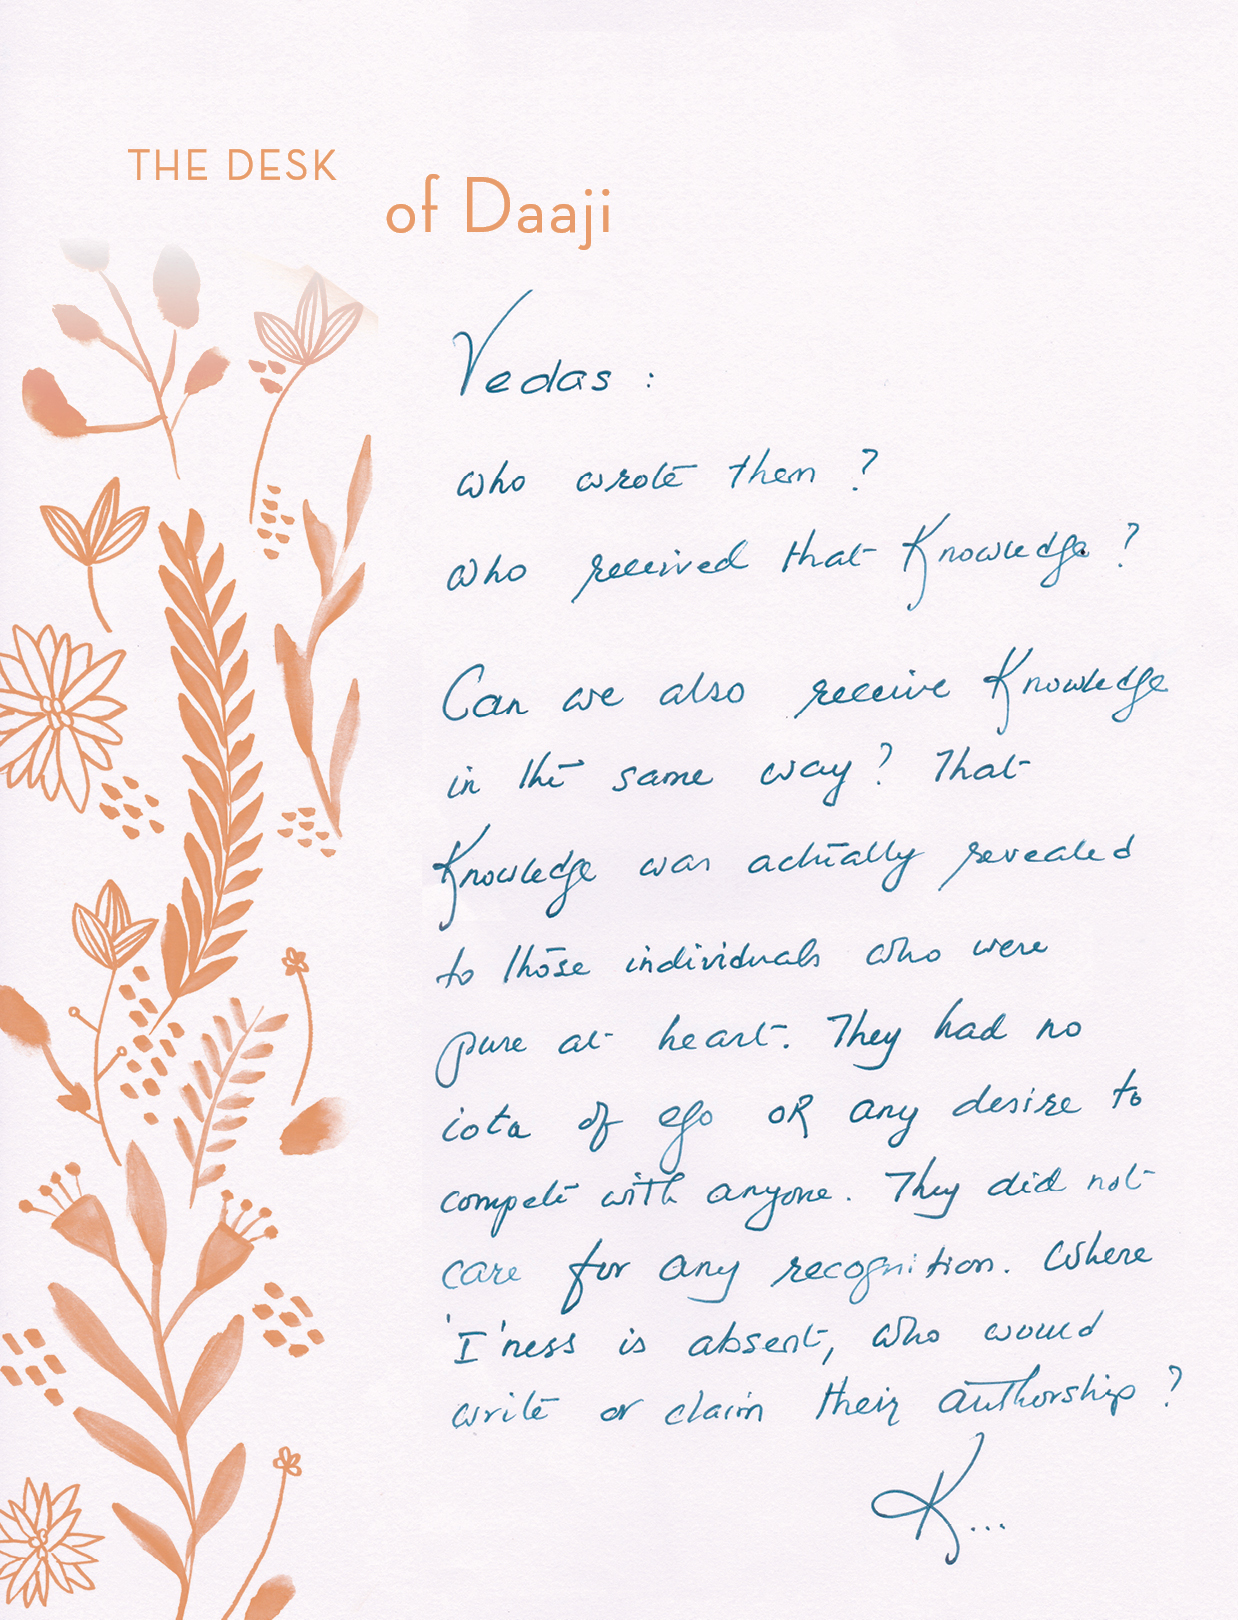 THE DESK
of Daaji
Vedas :
who wrote them ?
who received that Knowledge ?
Can we also receive Knowledge
in the same way ? That
Knowledge was actually revealed
to those individuals who were
pure at heart. They had no
iota of ego OR any desire to
compete with anyone. They did not
care for any recognition. Where
'I'ness is absent, who would
write or claim their authorship ?
K...